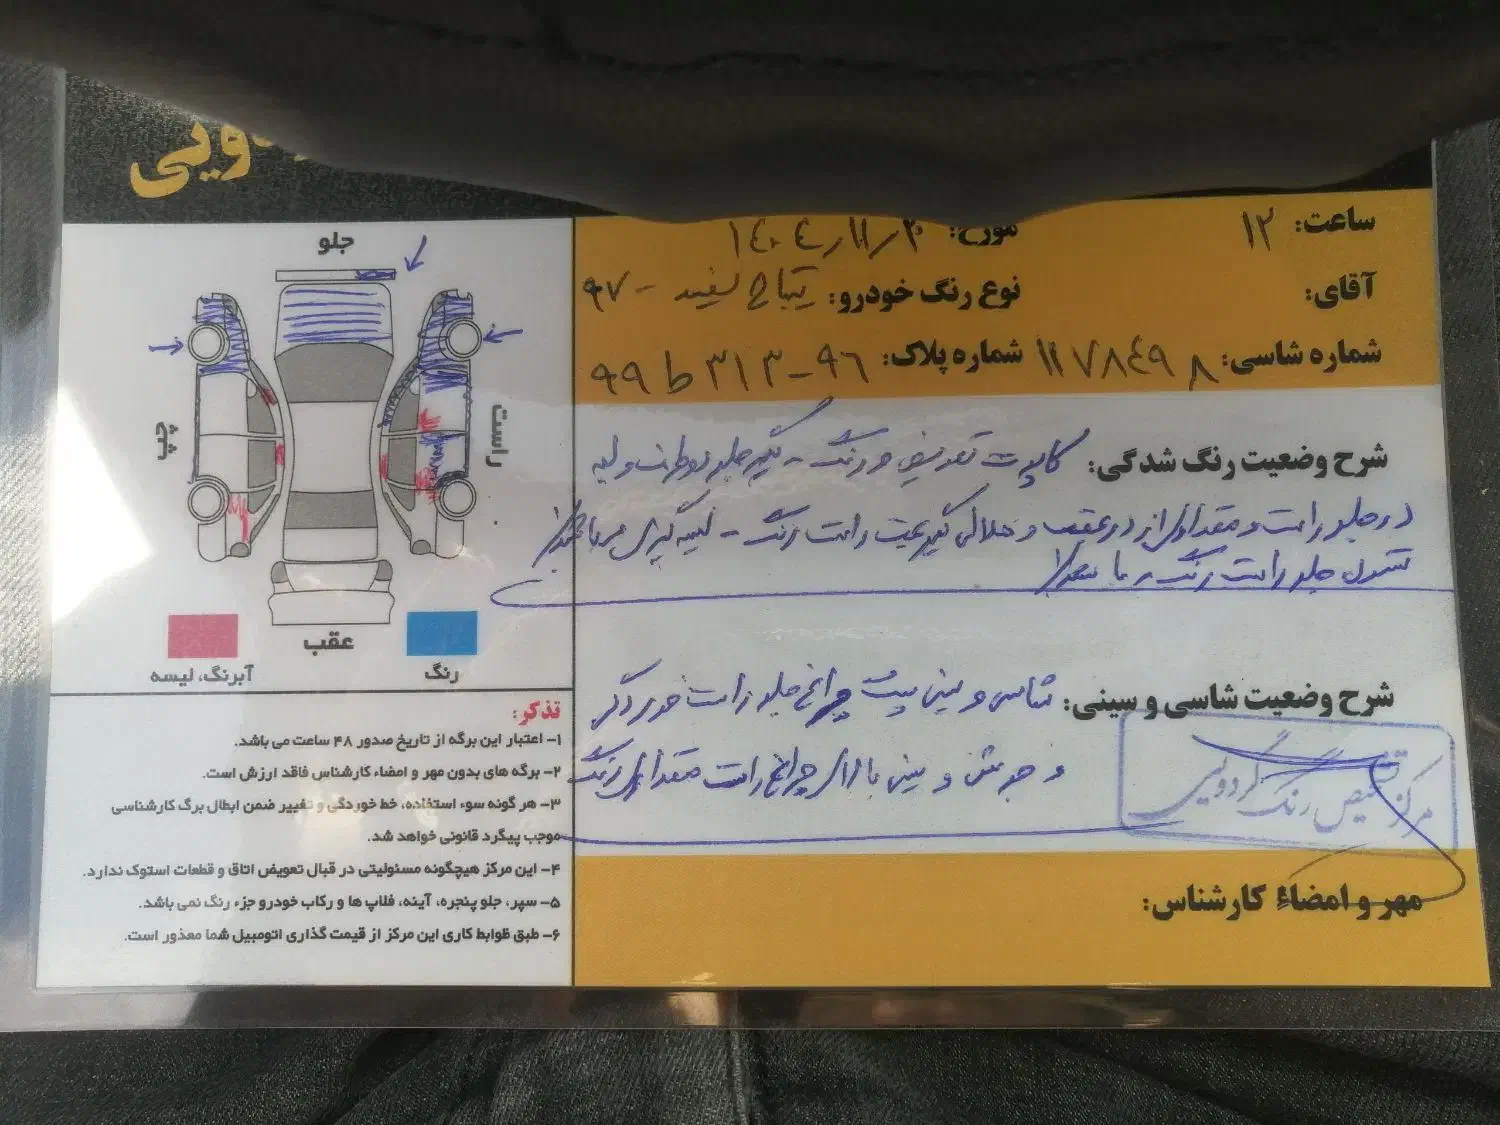 ساعت: ۱۲
مورخ: ۱۴۰۴/۱۱/۳۰
آقای:
نوع رنگ خودرو: تیبا ح سفید - ۹۷
شماره شاسی: ۱۱۷۸۴۹۸
شماره پلاک: ۹۹ ط ۳۱۳ - ۹۶
شرح وضعیت رنگ شدگی: کاپوت تعویض و رنگ - گلگیر جلو دو طرف و لبه
در جلو راست و مقداری از در عقب و گلگیر عقب راست رنگ - لیسه گیری
ستون جلو راست رنگ
شرح وضعیت شاسی و سینی: شاسی و سینی پشت چراغ جلو راست خوردگی
و جوش و سینی بالای چراغ راست مقداری رنگ
مرکز تشخیص رنگ گردویی
مهر و امضاء کارشناس:
جلو
چپ
راست
عقب
رنگ
آبرنگ، لیسه
تذکر:
۱- اعتبار این برگه از تاریخ صدور ۴۸ ساعت می باشد.
۲- برگه های بدون مهر و امضاء کارشناس فاقد ارزش است.
۳- هر گونه سوء استفاده، خط خوردگی و تغییر ضمن ابطال برگ کارشناسی
موجب پیگرد قانونی خواهد شد.
۴- این مرکز هیچگونه مسئولیتی در قبال تعویض اتاق و قطعات استوک ندارد.
۵- سپر، جلو پنجره، آینه، فلاپ ها و رکاب خودرو جزء رنگ نمی باشد.
۶- طبق ظوابط کاری این مرکز از قیمت گذاری اتومبیل شما معذور است.